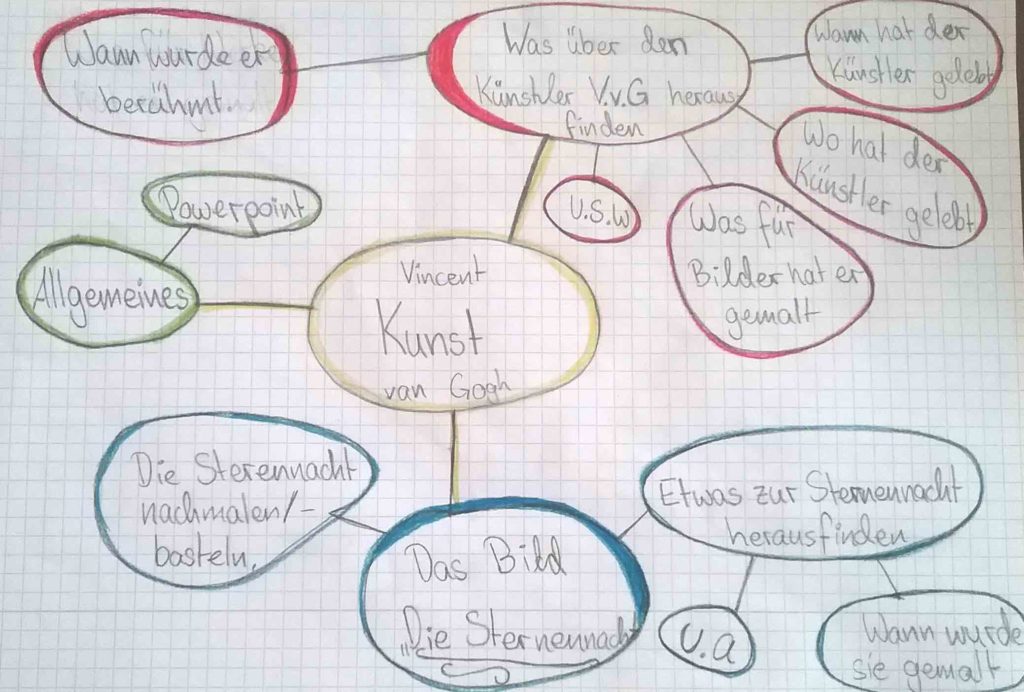 Wann wurde er
berühmt.
Was über den
Künstler V.v.G heraus
finden
Wann hat der
Künstler gelebt
Wo hat der
Künstler gelebt
U.S.W
Was für
Bilder hat er
gemalt
Powerpoint
Allgemeines
Vincent
Kunst
van Gogh
Die Sterennacht
nachmalen/-
basteln.
Das Bild
„Die Sternennacht
Etwas zur Sternennacht
herausfinden
U.a
Wann wurde
sie gemalt